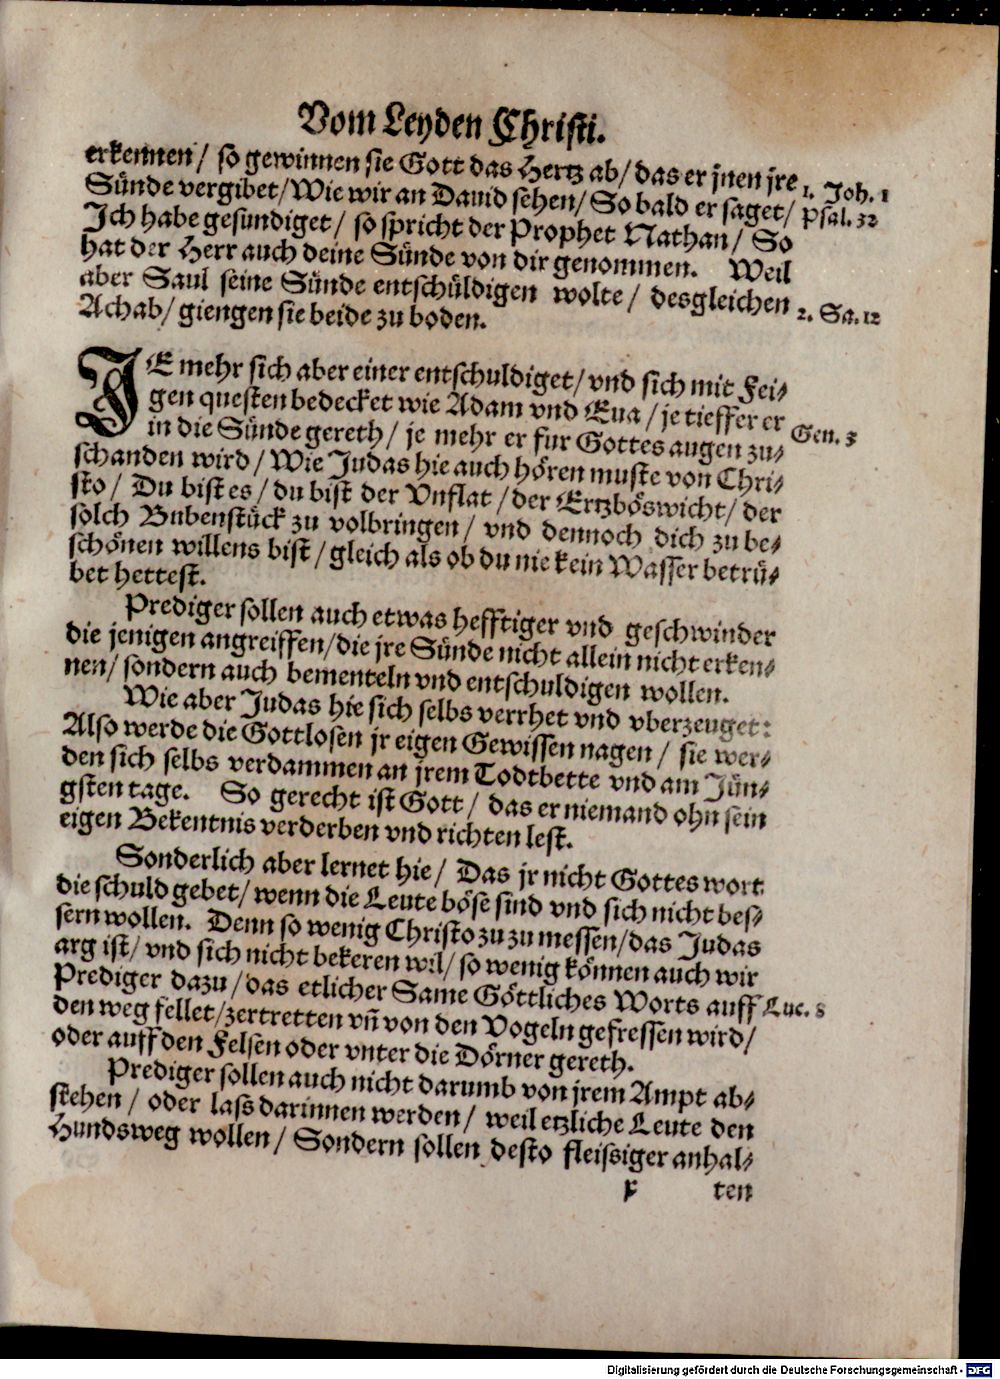 Vom Leyden Christi.
erkennen / so gewinnen sie Gott das Hertz ab / das er jnen jre
Sünde vergibet / Wie wir an Dauid sehen / So bald er saget /
Ich habe gesundiget / so spricht der Prophet Nathan / So
hat der Herr auch deine Sünde von dir genommen. Weil
aber Saul seine Sünde entschüldigen wolte / desgleichen
Achab / giengen sie beide zu boden.
1. Joh. 1
Psal. 32
2. Sa. 12
JE mehr sich aber einer entschuldiget / vnd sich mit Fei-
gen questen bedecket wie Adam vnd Eua / je tieffer er
in die Sünde gereth / je mehr er fur Gottes augen zu-
schanden wird / Wie Judas hie auch hören muste von Chri-
sto / Du bist es / du bist der Vnflat / der Ertzböswicht / der
solch Bubenstück zu volbringen / vnd dennoch dich zu be-
schönen willens bist / gleich als ob du nie kein Wasser betrü-
bet hettest.
Gen. 3
Prediger sollen auch etwas hefftiger vnd geschwinder
die jenigen angreiffen / die jre Sünde nicht allein nicht erken-
nen / sondern auch bementeln vnd entschuldigen wollen.
Wie aber Judas hie sich selbs verrhet vnd vberzeuget:
Also werde die Gottlosen jr eigen Gewissen nagen / sie wer-
den sich selbs verdammen an jrem Todtbette vnd am Jün-
gsten tage. So gerecht ist Gott / das er niemand ohn sein
eigen Bekentnis verderben vnd richten lest.
Sonderlich aber lernet hie / Das jr nicht Gottes wort
die schuld gebet / wenn die Leute böse sind vnd sich nicht bes-
sern wollen. Denn so wenig Christo zu zu messen / das Judas
arg ist / vnd sich nicht bekeren wil / so wenig können auch wir
Prediger dazu / das etlicher Same Göttliches Worts auff
den weg fellet / zertretten vn̄ von den Vogeln gefressen wird /
oder auff den Felsen oder vnter die Dörner gereth.
Luc. 8
Prediger sollen auch nicht darumb von jrem Ampt ab-
stehen / oder lass darinnen werden / weil etzliche Leute den
Hundsweg wollen / Sondern sollen desto fleissiger anhal-
x ten
Digitalisierung gefördert durch die Deutsche Forschungsgemeinschaft - DFG